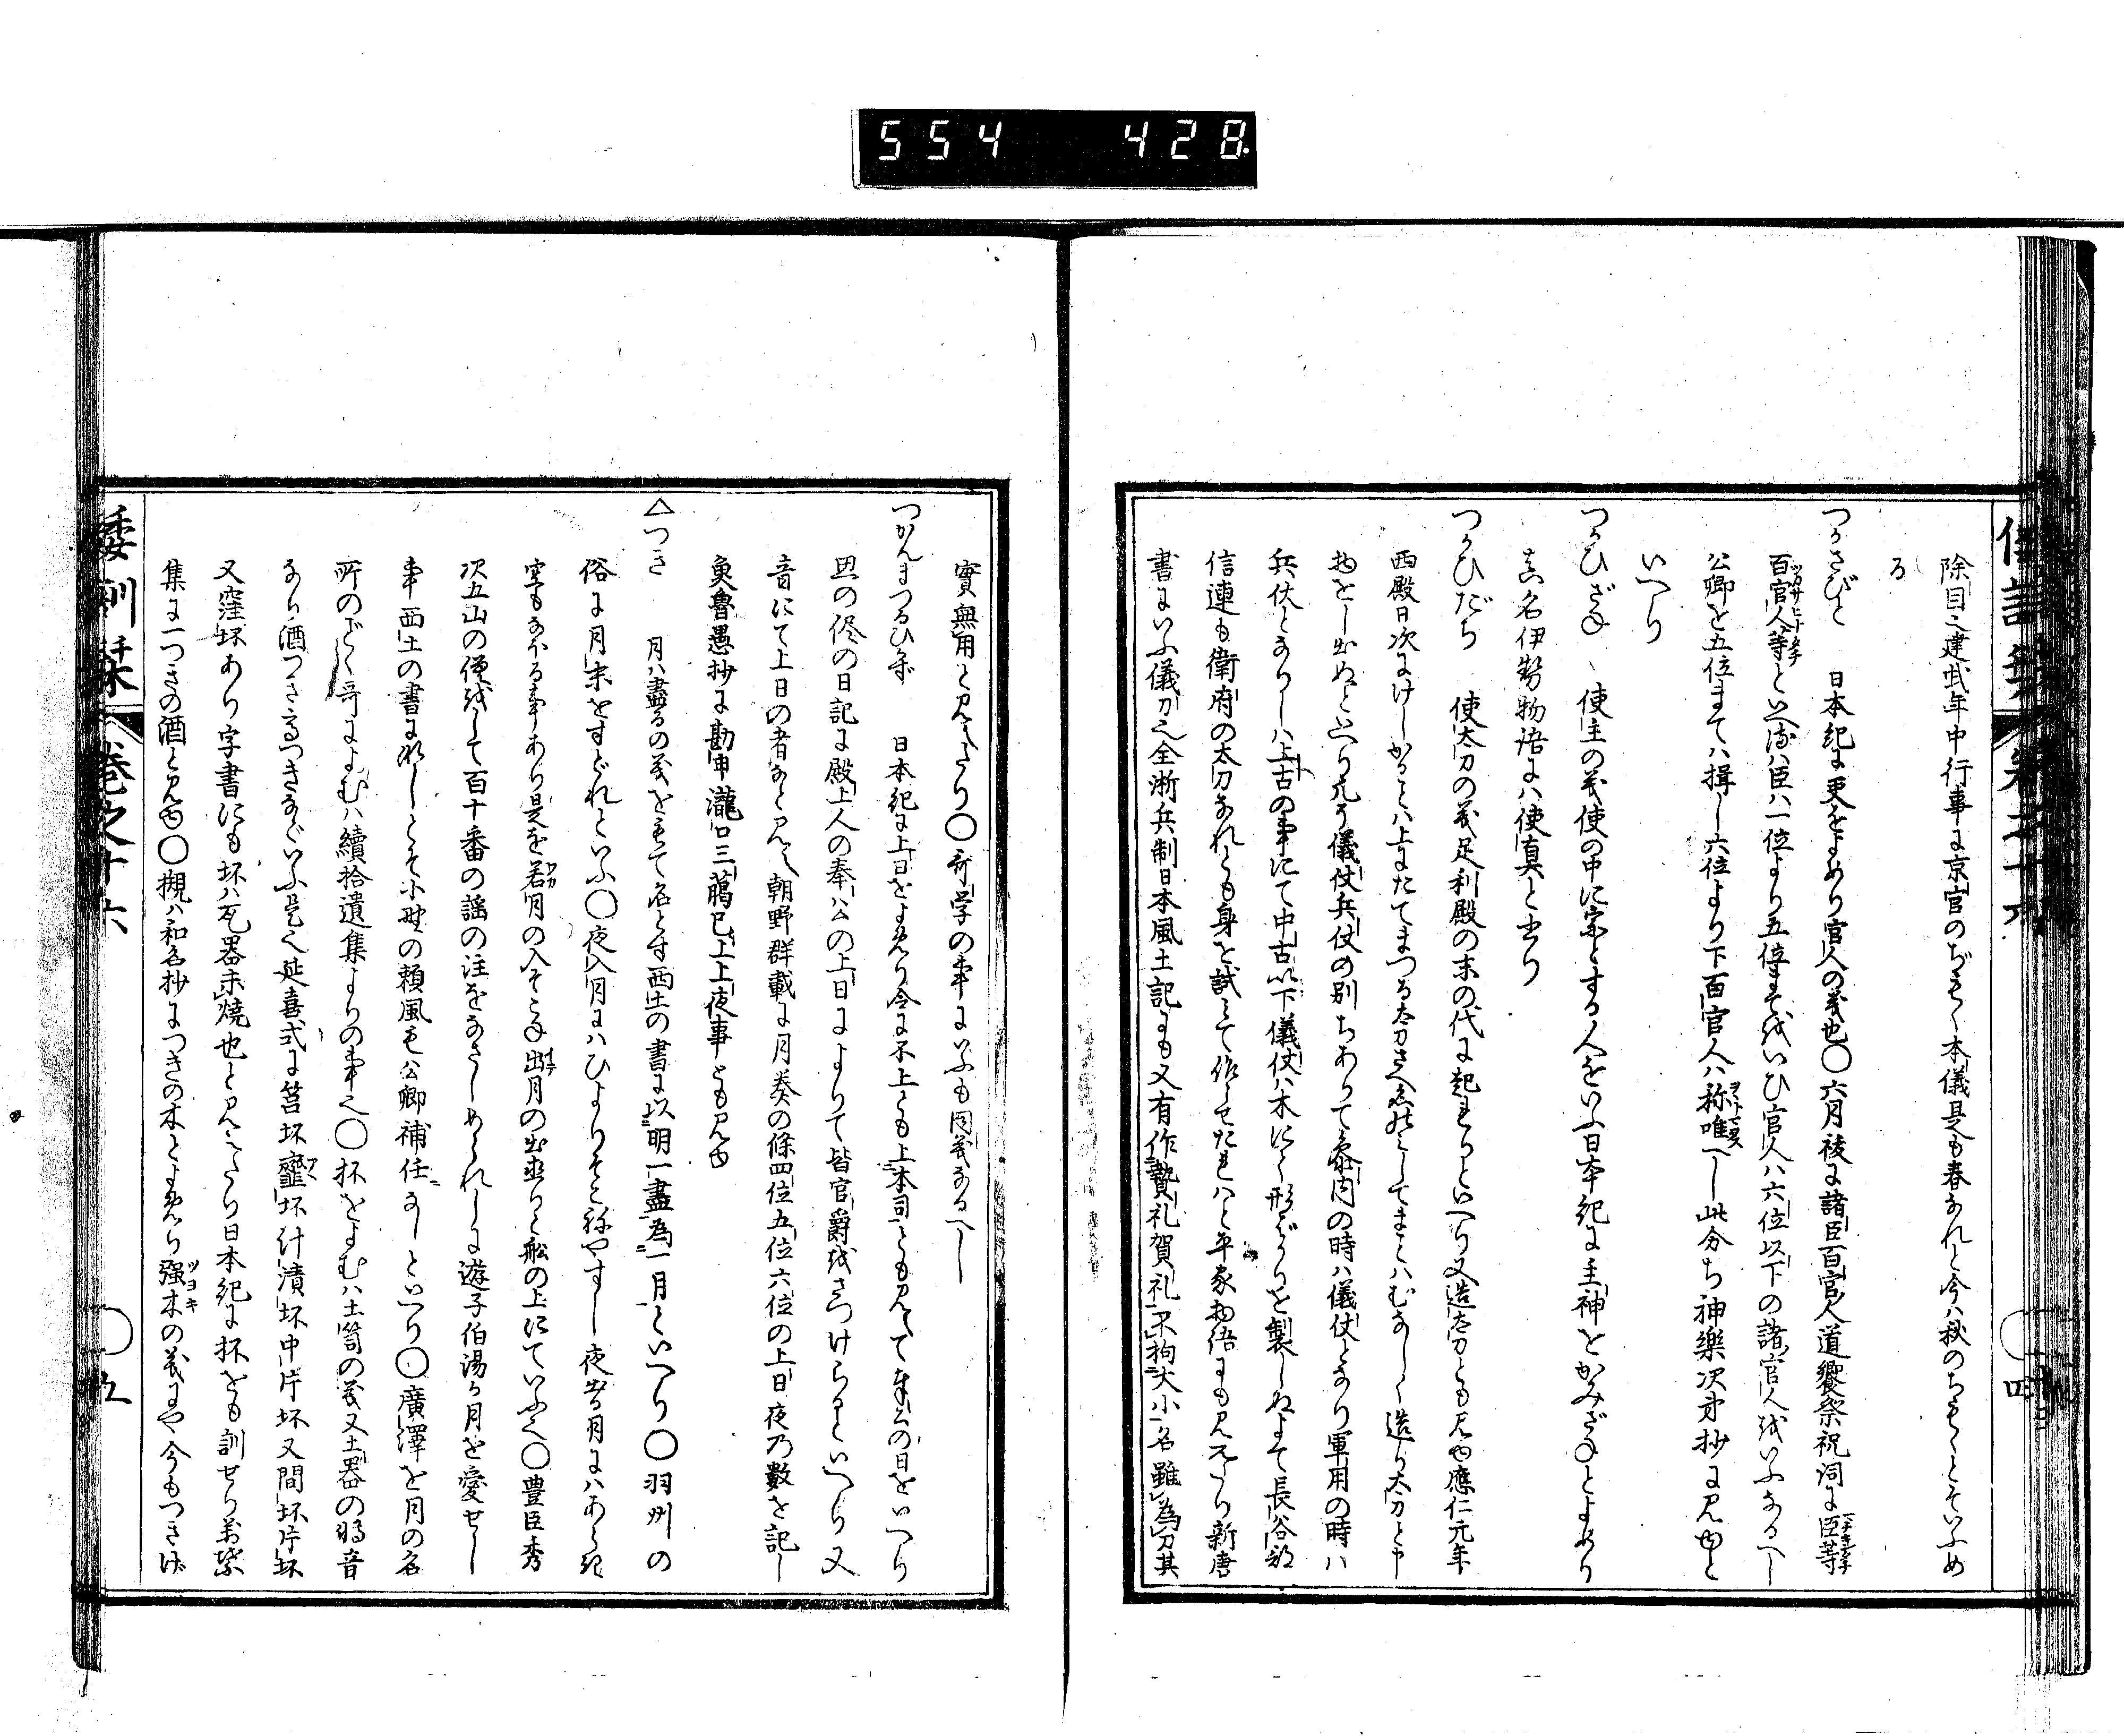 554 428
除目之建武年中行事に京官のぢもく本儀是も春なれと今ハ秋のちもくとそいふめ
る
つかさびと 日本紀に吏をよめり官人の義也〇六月祓に諸臣百官人道饗祭祝詞に臣等
百官人等といへるハ臣ハ一位より五位まてをいひ官人ハ六位以下の諸官人をいふなるへし
公卿を五位まてハ揖し六位より下百官人ハ称唯へし此分ち神樂次第抄に見ゆと
いへり
つかひざね 使主の義使の中に宗とする人をいふ日本紀に主神とかみざねとよめり
真名伊勢物語にハ使真と書り
つかひだち 使太刀の義足利殿の末の代に起るといへり又造太刀とも見ゆ應仁元年
西殿日次に
物をし出ぬといへり凡そ儀仗兵仗の別ちありて参内の時ハ儀仗となり軍用の時ハ
兵仗となりしハ上古の事にて中古以下儀仗ハ木にて形ばかりを製しぬよて長谷部
信連も衛府の太刀なれとも身を試みて作らせたれハと平家物語にも見えたり新唐
書にいふ儀刀之全浙兵制日本風土記にも又有作贄礼賀礼不拘大小名雖為刀其
實無用と見えたり〇新学の事にいふも同義なるへし
つかんまつるひ 日本紀に上日をよめり今に不上とも上本司とも見えて奉公の日をいへり
思の侭の日記に殿上人の奉公の上日によりて皆官爵をさつけらるといへり又
音にて上日の者なと見え朝野群載に月奏の條四位五位六位の上日夜乃數を記し
魚魯愚抄に勘申瀧口三﨟已上上夜事とも見ゆ
△つき 月ハ盡るの義をもて名とす西土の書に以明一盡為一月といへり〇羽州の
俗に月末をすどれといふ〇夜入月にハひよりそこねやすし夜出る月にハあらす
空もなほる事あり是を若月の入そこね出月の出直りと舩の上にていふ之〇豊臣秀
次五山の僧をして百十番の謡の注をなさしめられしに遊子伯湯か月を愛せし
事西土の書になしとそ小野の頼風も公卿補任になしといへり〇廣澤を月の名
所のごとく哥によむハ續拾遺集よりの事之〇杯をよむハ土笥の義又土器の略音
なり酒つきうつきなといふ是之延喜式に筥坏齏坏汁漬坏中片坏又間坏片坏
又窪坏あり字書にも坏ハ瓦器未燒也と見えたり日本紀に杯をも訓せり万葉
集に一つきの酒と見ゆ〇槻ハ和名抄につきの木とよめり强木の義にや今もつきげ
倭訓栞 卷之十六 五